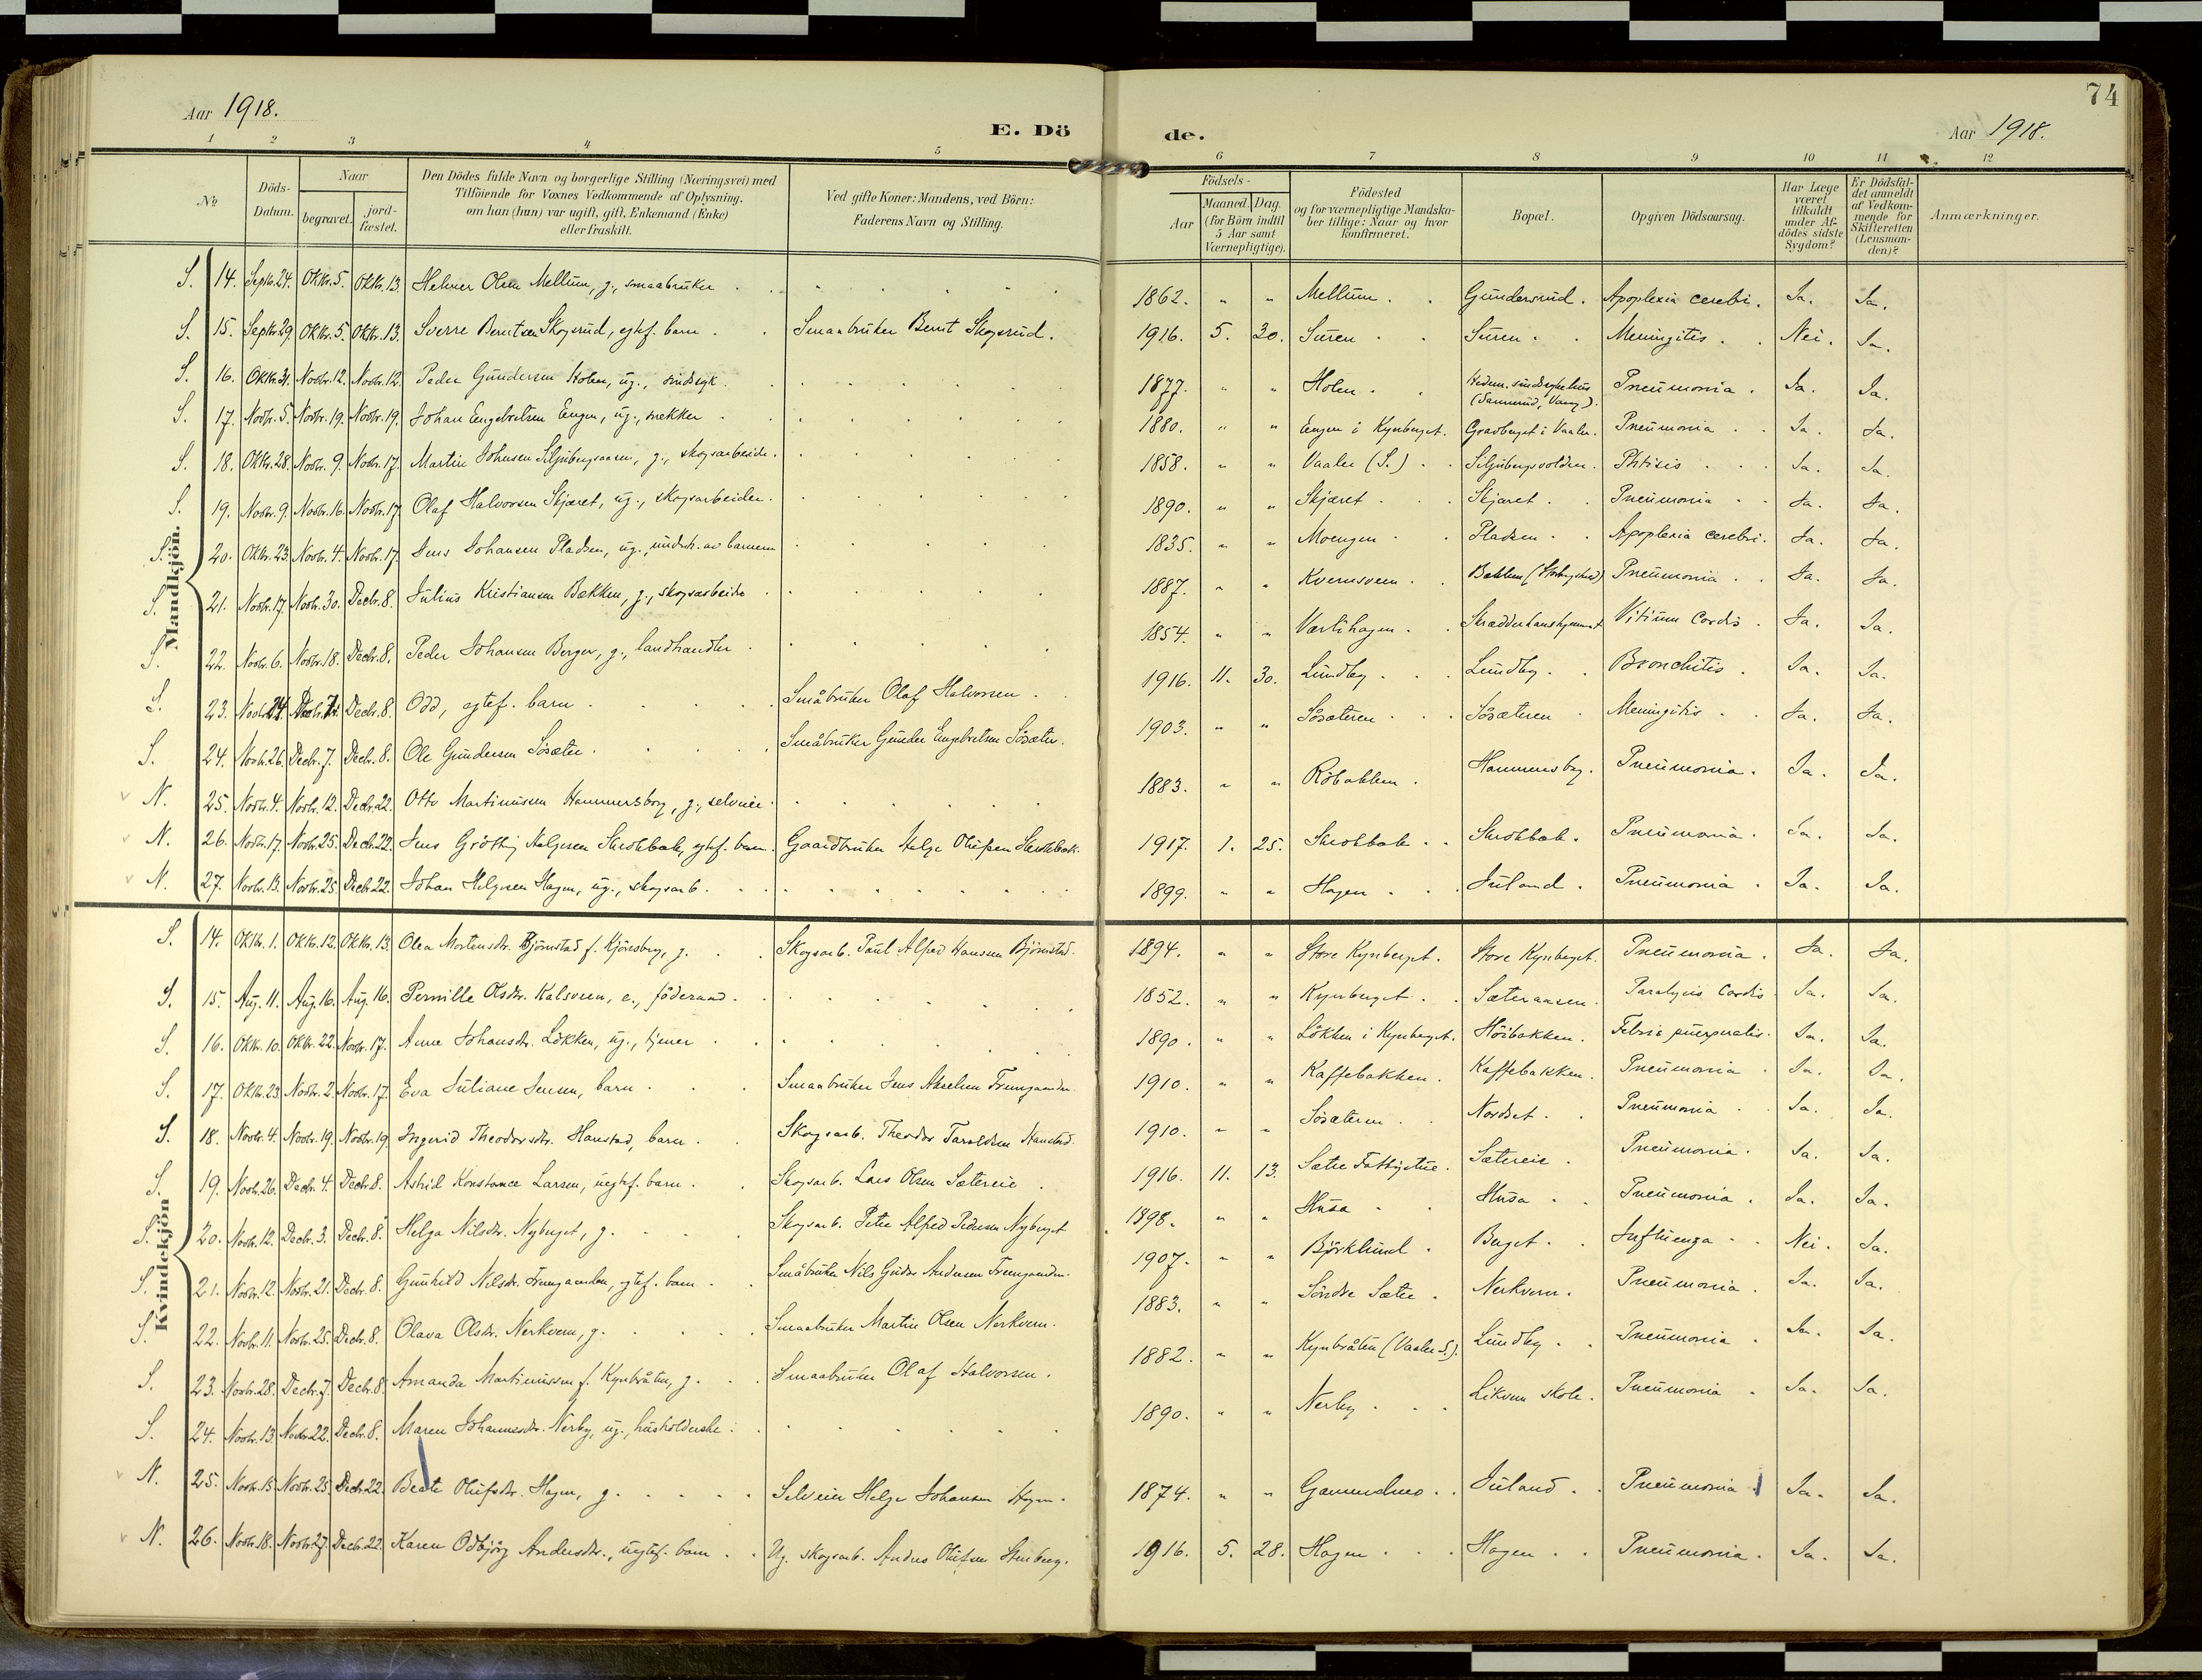 74
Aar 1918.
E. Dö de.
Aar 1918.
1 2 3 4 5 6 7 8 9 10 11 12
No
Döds-Datum.
Naar
begravet.
jord-fæstet.
Den Dödes fulde Navn og borgerlige Stilling (Næringsvei) med
Tilföiende for Voxnes Vedkommende af Oplysning,
om han (hun) var ugift, gift, Enkemand (Enke)
eller fraskilt.
Ved gifte Koner: Mandens, ved Börn:
Faderens Navn og Stilling.
Födsels-
Aar
Maaned. Dag.
(for Börn indtil
5 Aar samt
Værnepligtige).
Födested
og for værnepligtige Mandska-
ber tillige: Naar og hvor
konfirmeret.
Bopæl.
Opgiven Dödsaarsag.
Har Læge
været
tilkaldt
under Af-
dödes sidste
Sygdom?
Er Dödsfal-
det anmeldt
af Vedkom-
mende for
Skifteretten
(Lensman-
den)?
Anmærkninger.
Mandkjön.
S. 14. Septr. 24. Oktr. 5. Oktr. 13. Helmer Olsen Mellum, g., smaabruker 1862. " " Mellum. Gundersrud. Apoplexia cerebri. Ja. Ja.
S. 15. Septr. 29. Oktr. 5. Oktr. 13. Sverre Berntsen Skogsrud, egtef. barn. Smaabruker Bernt Skogsrud. 1916. 5. 30. Suren Suren Meningitis. Nei. Ja.
S. 16. Oktr. 31. Novbr. 12. Novbr. 12. Peder Gundersen Holen, ug., sindsyk. 1877. " " Holen. Hedem. sindssykehus (Sanderud, Vang). Pneumonia. Ja. Ja.
S. 17. Novbr. 5. Novbr. 19. Novbr. 19. Johan Engebretsen Engen, ug., snekker 1880. " " Engen i Kynberget. Gravberget i Vaaler. Pneumonia Ja. Ja.
S. 18. Oktr. 28. Novbr. 9. Novbr. 17. Martin Johnsen Siljubergsaaen, g., skogsarbeider. 1858. " " Vaaler (S.) Siljubergsvolden. Phtisis Ja. Ja.
S. 19. Novbr. 9. Novbr. 16. Novbr. 17. Olaf Halvorsen Skjæret, ug., skogsarbeider. 1890. " " Skjæret Skjæret. Pneumonia Ja. Ja.
S. 20. Oktr. 23. Novbr. 4. Novbr. 17. Jens Johansen Pladsen, ug., underst. av barnem 1835. " " Moengen Pladsen Apoplexia cerebri. Ja. Ja.
S. 21. Novbr. 17. Novbr. 30. Decbr. 8. Julius Kristiansen Bækken, g., skogsarbeider 1887. " " Kvernsveen. Bækken Pneumonia Ja. Ja.
S. 22. Novbr. 6. Novbr. 18. Decbr. 8. Peder Johansen Berger, g., landhandler 1854. " " Værlihagen. Vitium Cordis. Ja. Ja.
S. 23. Novbr. 24. Decbr. 7. Decbr. 8. Odd, egtef. barn Småbruker Olaf Halvorsen 1916. 11. 30. Lundby Lundby Bronchitis. Ja. Ja.
S. 24. Novbr. 26. Decbr. 7. Decbr. 8. Ole Gundersen Sösæter. Småbruker Gunder Engebretsen Sösæter. 1903. " " Sösæteren Sösæteren Meningitis. Ja. Ja.
N. 25. Novbr. 4. Novbr. 12. Decbr. 22. Otto Martinussen Hammersborg, g., selveier. 1883. " " Röbakken. Hammersbg. Pneumonia. Ja. Ja.
N. 26. Novbr. 17. Novbr. 25. Decbr. 22. Jens Helgesen Skrokbæk, egtef. barn. Gaardbruker Helge Olufsen Skrokbæk. 1917. 1. 25. Skrokbæk Skrokbæk. Pneumonia. Ja. Ja.
N. 27. Novbr. 13. Novbr. 25. Decbr. 22. Johan Helgesen Hagen, ug., skogsarb. 1899. " " Hagen Juland. Pneumonia Ja. Ja.
Kvindekjön
S. 14. Oktr. 1. Oktr. 12. Oktr. 13. Olea Mortensdr. Bjørnstad f. Kjönsberg, g. Skogsarb. Paul Alfred Hanssen Bjørnstad. 1894. " " Store Kynberget. Store Kynberget. Pneumonia. Ja. Ja.
S. 15. Aug. 11. Aug. 16. Aug. 16. Pernille Olsdr. Kalsveen, e., föderaad. 1852. " " Kynberget Sæteraasen. Paralysis Cordis. Ja. Ja.
S. 16. Oktr. 10. Oktr. 22. Novbr. 17. Anne Johansdr. Lökken, ug., tjener 1890. " " Lökken i Kynberget. Höibakken. Febris puerperalis. Ja. Ja.
S. 17. Oktr. 23. Novbr. 2. Novbr. 17. Eva Juliane Jensen, barn Smaabruker Jens Akselsen Tremyaamoen 1910. " " Kaffebakken. Kaffebakken. Pneumonia Ja. Ja.
S. 18. Novbr. 4. Novbr. 19. Novbr. 19. Ingerid Theodorsdr. Hanstad, barn. Skogsarb. Theodor Taraldsen Hanstad. 1910. " " Sösæteren Nordset. Pneumonia Ja. Ja.
S. 19. Novbr. 26. Decbr. 4. Decbr. 8. Astrid Konstance Larsen, uegtef. barn. Skogsarb. Lars Olsen Sætereie 1916. 11. 13. Sætre Fattigstue. Sætereie. Pneumonia. Ja. Ja.
S. 20. Novbr. 12. Decbr. 3. Decbr. 8. Helga Nilsdr. Nyberget, g. Skogsarb. Peter Alfred Pedersen Nyberget 1898. " " Husa Husa Pneumonia. Ja. Ja.
S. 21. Novbr. 12. Novbr. 21. Decbr. 8. Gunhild Nilsdr. Tremyaamoen, egtef. barn Småbruker Nils Andersen Tremyaamoen. 1907. " " Björklund. Berget. Influenza Nei. Ja.
S. 22. Novbr. 11. Novbr. 25. Decbr. 8. Olava Olsdr. Nerkvern, g. Smaabruker Martin Olsen Nerkvern. 1883. " " Söndre Sætre. Nerkvern. Pneumonia. Ja. Ja.
S. 23. Novbr. 28. Decbr. 7. Decbr. 8. Amanda Martinussen f. Kynbråten, g. Smaabruker Olaf Halvorsen. 1882. " " Kynbråten (Vaaler S.). Lundby Pneumonia Ja. Ja.
S. 24. Novbr. 13. Novbr. 22. Decbr. 8. Maren Johannesdr. Nerby, ug., husholderske 1890. " " Nerby Likvern skole. Pneumonia Ja. Ja.
N. 25. Novbr. 15. Novbr. 25. Decbr. 22. Beate Olufsdr. Hagen, g. Selveier Helge Johansen Hagen. 1874. " " Gammelmo Juland Pneumonia Ja. Ja.
N. 26. Novbr. 18. Novbr. 27. Decbr. 22. Karen Odbjörg Andersdtr., uegtef. barn Ug. skogsarb. Anders Olufsen Stenberg. 1916. 5. 28. Hagen Hagen Pneumonia. Ja. Ja.